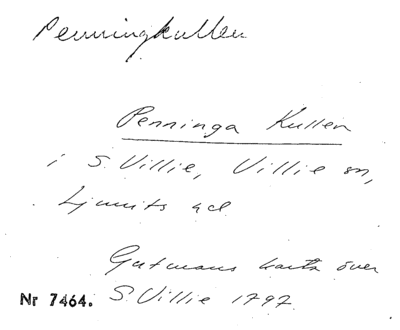 Penningkullen
Penninga Kullen
i S. Villie, Villie sn,
Ljunits hd
Gutmans karta över
Nr 7464. S. Villie 1797